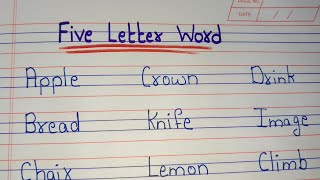 DATE
Five Letter Word
Apple Crown Drink
Bread Knife Image
Chair Lemon Climb